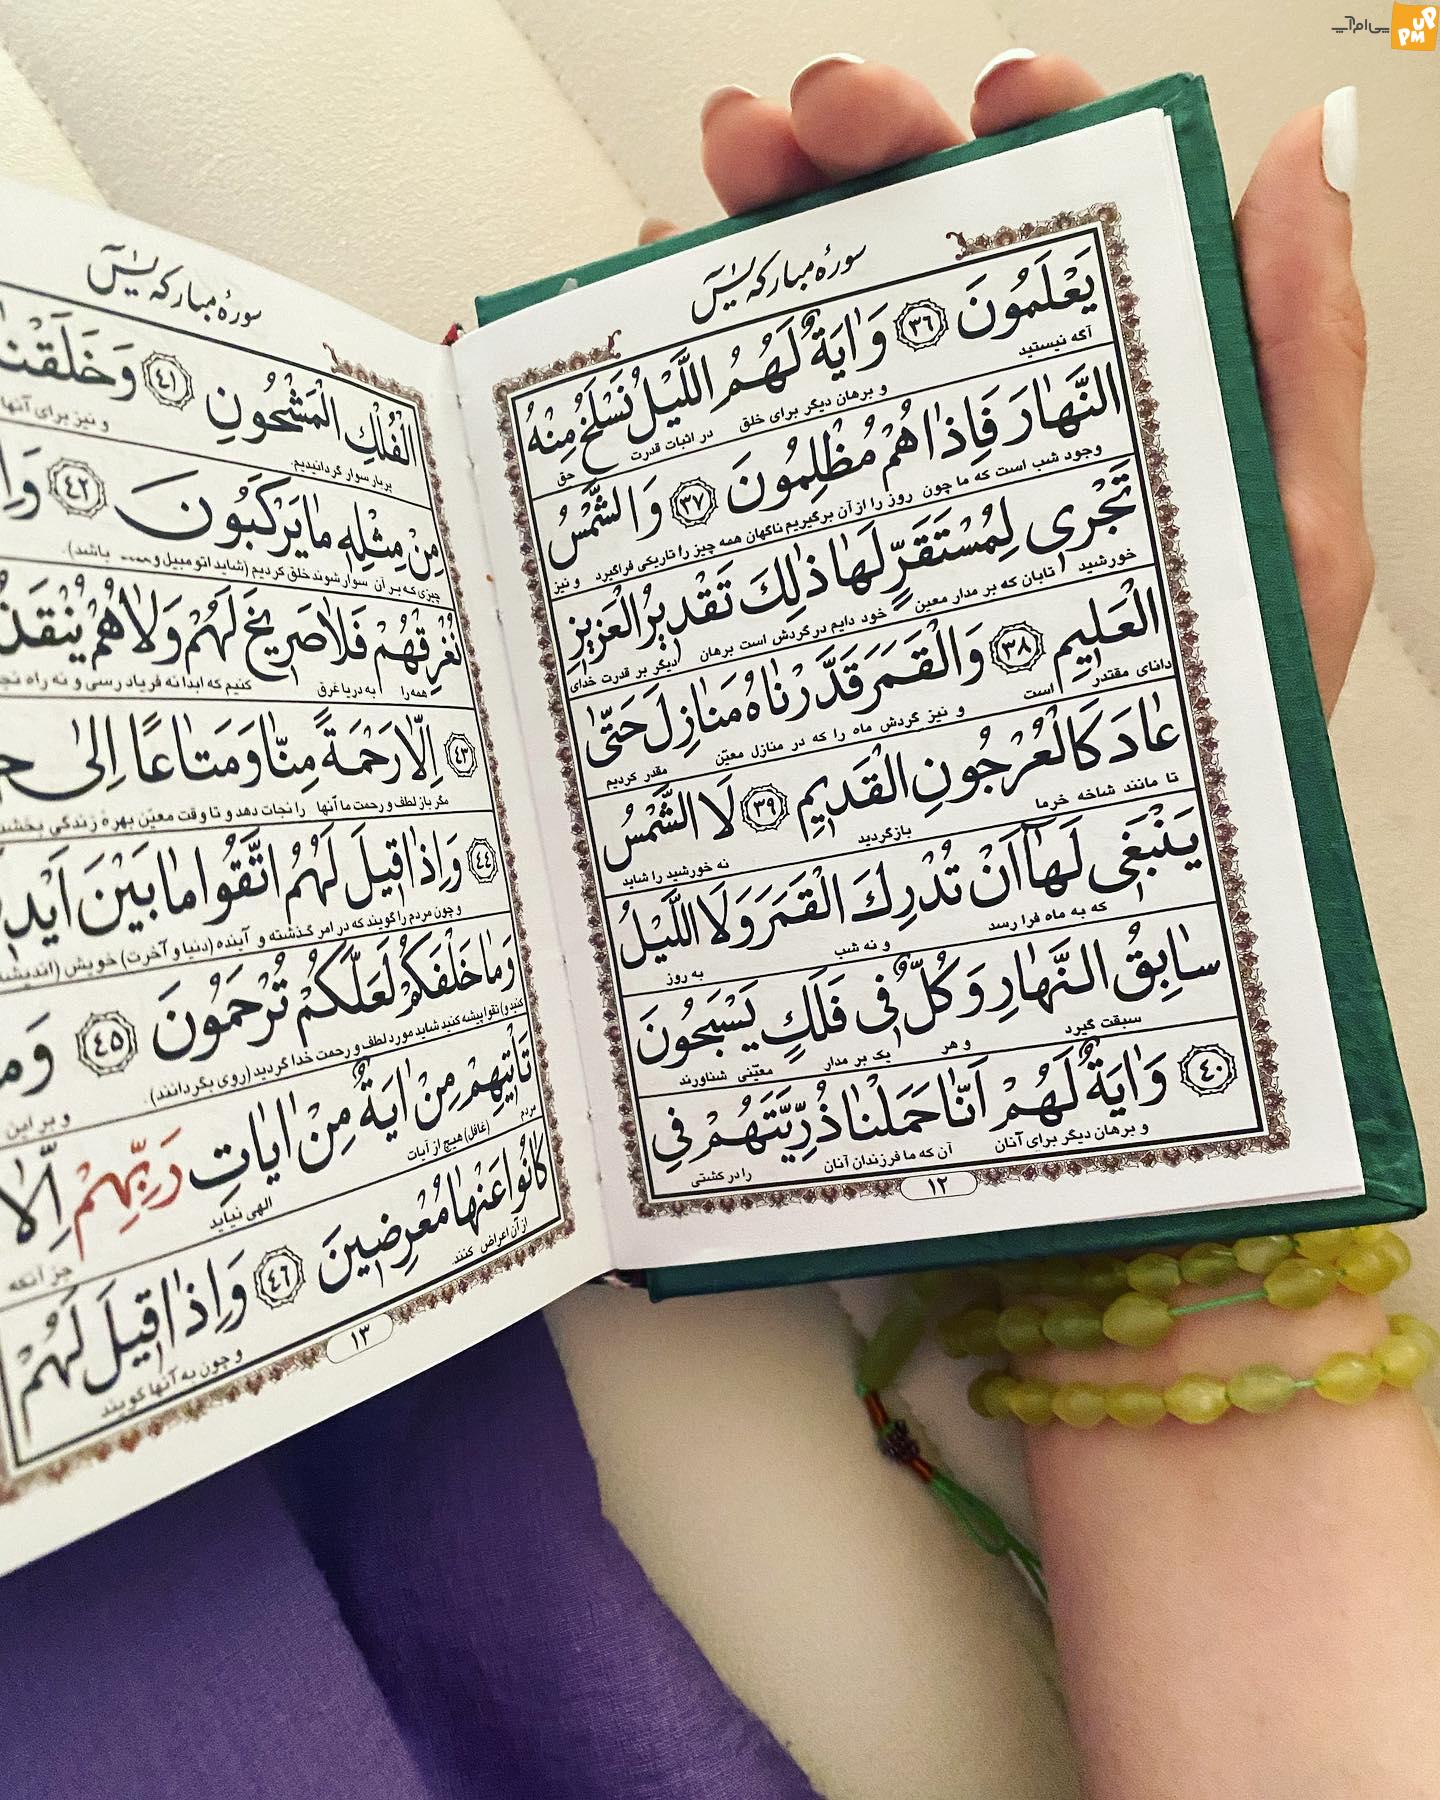 پی‌ام‌آپ
PMUP
سورهٔ مبارکه یٰسٓ
یَعْلَمُونَ ﴿٣٦﴾ وَاٰیَةٌ لَهُمُ اللَّیْلُ نَسْلَخُ مِنْهُ
آگه نیستید و برهان دیگر برای خلق در اثبات قدرت حق
النَّهٰارَ فَاِذٰا هُمْ مُظْلِمُونَ ﴿٣٧﴾ وَالشَّمْسُ
وجود شب است که ما چون روز را از آن برگیریم ناگهان همه چیز را تاریکی فراگیرد و نیز
تَجْری لِمُسْتَقَرٍّ لَهٰا ذٰلِكَ تَقْدیرُ الْعَزیزِ
خورشید تابان که بر مدار معین خود دایم در گردش است برهان دیگر بر قدرت خدای
الْعَلیمِ ﴿٣٨﴾ وَالْقَمَرَ قَدَّرْنٰاهُ مَنٰازِلَ حَتّٰی
دانای مقتدر است و نیز گردش ماه را که در منازل معیّن مقدر کردیم
عٰادَ کَالْعُرْجُونِ الْقَدیمِ ﴿٣٩﴾ لَا الشَّمْسُ
تا مانند شاخه خرما بازگردید نه خورشید را شاید
یَنْبَغی لَهٰا اَنْ تُدْرِكَ الْقَمَرَ وَلَا اللَّیْلُ
که به ماه فرا رسد و نه شب به روز
سٰابِقُ النَّهٰارِ وَکُلٌّ فی فَلَكٍ یَسْبَحُونَ
سبقت گیرد و هر یک بر مدار معیّنی شناورند
﴿٤٠﴾ وَاٰیَةٌ لَهُمْ اَنّٰا حَمَلْنٰا ذُرِّیَّتَهُمْ فِی
و برهان دیگر برای آنان آن که ما فرزندان آنان را در کشتی
١٢
سورهٔ مبارکه یٰسٓ
الْفُلْكِ الْمَشْحُونِ ﴿٤١﴾ وَخَلَقْنٰا
بربار سوار گردانیدیم. و نیز برای آنها
مِنْ مِثْلِهِ مٰا یَرْکَبُونَ ﴿٤٢﴾
چیزی که بر آن سوار شوند خلق کردیم (شاید اتومبیل و.... باشد).
نُغْرِقْهُمْ فَلٰا صَریخَ لَهُمْ وَلٰا هُمْ
همه را به دریا غرق کنیم که ابدا نه فریاد رسی و نه راه
﴿٤٣﴾ اِلّٰا رَحْمَةً مِنّٰا وَمَتٰاعًا اِلٰی
مگر باز لطف و رحمت ما آنها را نجات دهد و تا وقت معیّن بهره زندگی
﴿٤٤﴾ وَاِذٰا قیلَ لَهُمُ اتَّقُوا مٰا بَیْنَ
و چون مردم را گویند که در امر گذشته و آینده (دنیا و آخرت) خویش
وَمٰا خَلْفَکُمْ لَعَلَّکُمْ تُرْحَمُونَ ﴿٤٥﴾
کنید و) تقوا پیشه کنید شاید مورد لطف و رحمت خدا گردید (روی بگردانند). و بر این
تَأْتیهِمْ مِنْ اٰیَةٍ مِنْ اٰیٰاتِ رَبِّهِمْ اِلّٰا
مردم (غافل) هیچ از آیات الهی نیاید جز آنکه
کٰانُوا عَنْهٰا مُعْرِضینَ ﴿٤٦﴾ وَاِذٰا قیلَ لَهُمْ
از آن اعراض کنند. و چون به آنها گویند
١٣